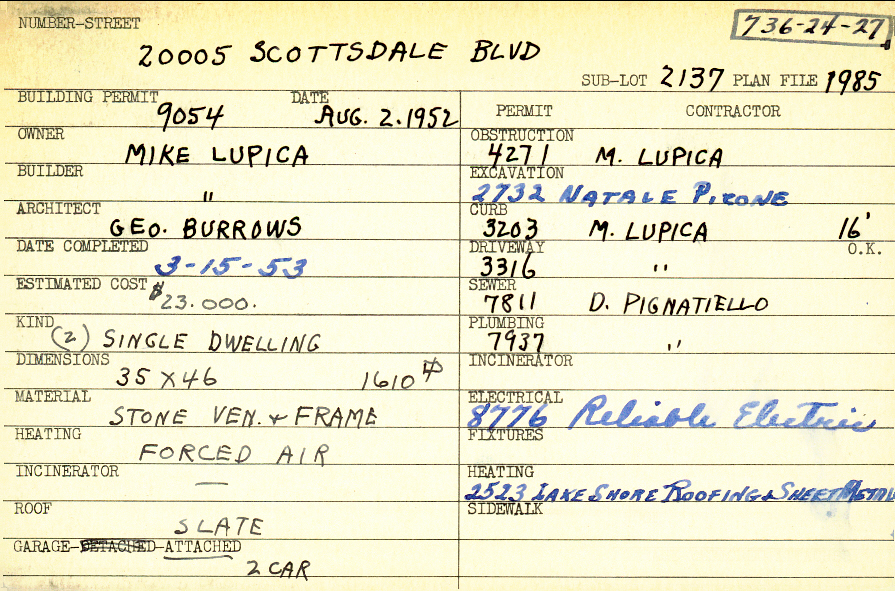 NUMBER-STREET
736-24-27
20005 SCOTTSDALE BLVD
SUB-LOT 2137 PLAN FILE 1985
BUILDING PERMIT 9054 DATE AUG. 2. 1952
OWNER MIKE LUPICA
BUILDER "
ARCHITECT GEO. BURROWS
DATE COMPLETED 3-15-53
ESTIMATED COST $23.000.
KIND (2) SINGLE DWELLING
DIMENSIONS 35 X 46 1610 #
MATERIAL STONE VEN. & FRAME
HEATING FORCED AIR
INCINERATOR —
ROOF SLATE
GARAGE-DETACHED-ATTACHED
2 CAR
PERMIT CONTRACTOR
OBSTRUCTION 4271 M. LUPICA
EXCAVATION 2732 NATALE PIZONE
CURB 3203 M. LUPICA 16'
O.K.
DRIVEWAY 3316 "
SEWER 7811 D. PIGNATIELLO
PLUMBING 7937 "
INCINERATOR
ELECTRICAL 8776 Reliable Electric
FIXTURES
HEATING 2523 LAKE SHORE ROOFING & SHEET METAL
SIDEWALK